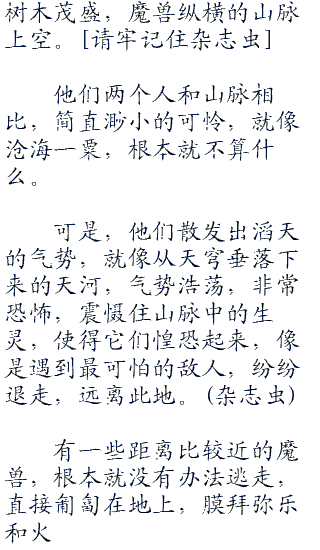 树木茂盛，魔兽纵横的山脉
上空。[请牢记住杂志虫]
他们两个人和山脉相
比，简直渺小的可怜，就像
沧海一粟，根本就不算什
么。
可是，他们散发出滔天
的气势，就像从天穹垂落下
来的天河，气势浩荡，非常
恐怖，震慑住山脉中的生
灵，使得它们惶恐起来，像
是遇到最可怕的敌人，纷纷
退走，远离此地。(杂志虫)
有一些距离比较近的魔
兽，根本就没有办法逃走，
直接匍匐在地上，膜拜弥乐
和火